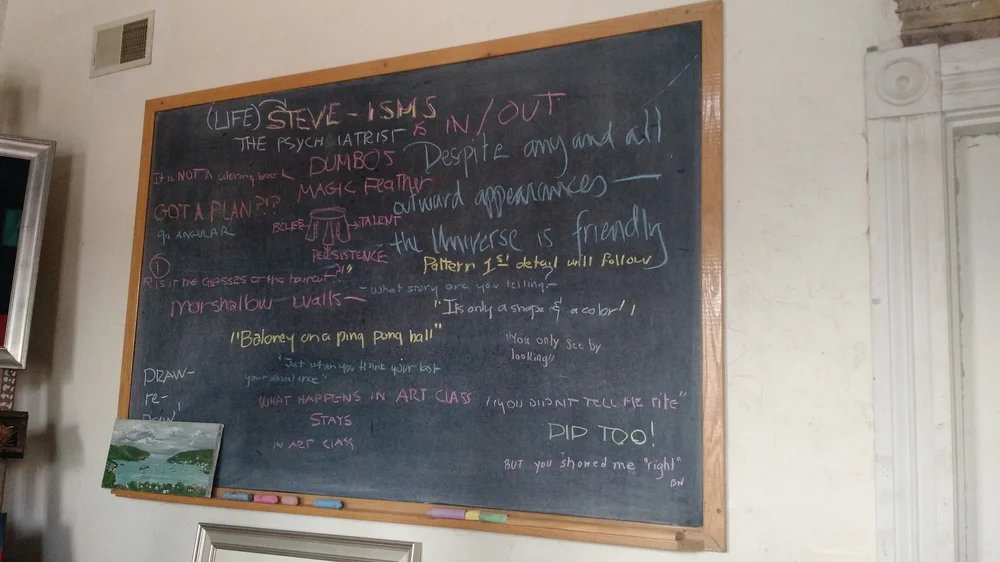 (LIFE) STEVE - ISMS
THE PSYCHIATRIST IS IN/OUT
It is NOT A coloring book
DUMBO'S
MAGIC FEATHER
Despite any and all
outward appearances —
the Universe is friendly
GOT A PLAN?!?
go ANGULAR
BELIEF
TALENT
PERSISTENCE
Pattern 1st detail will follow
①
IS IT THE GLASSES OR the haircut?!"
- what story are you telling -
marshallow walls
"Its only a shape & a color"
"Baloney on a ping pong ball"
"You only see by
looking"
"Just when you think your lost
DRAW-
re-
Draw!
WHAT HAPPENS IN ART CLASS
STAYS
IN ART CLASS
"YOU DIDNT TELL ME rite"
DID TOO!
BUT you showed me "right"
BW